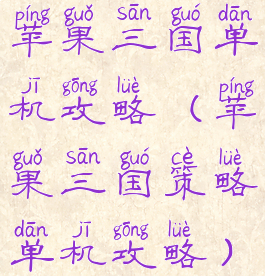 píng guǒ sān guó dān
苹果三国单
jī gōng lüè píng
机攻略（苹
guǒ sān guó cè lüè
果三国策略
dān jī gōng lüè
单机攻略）